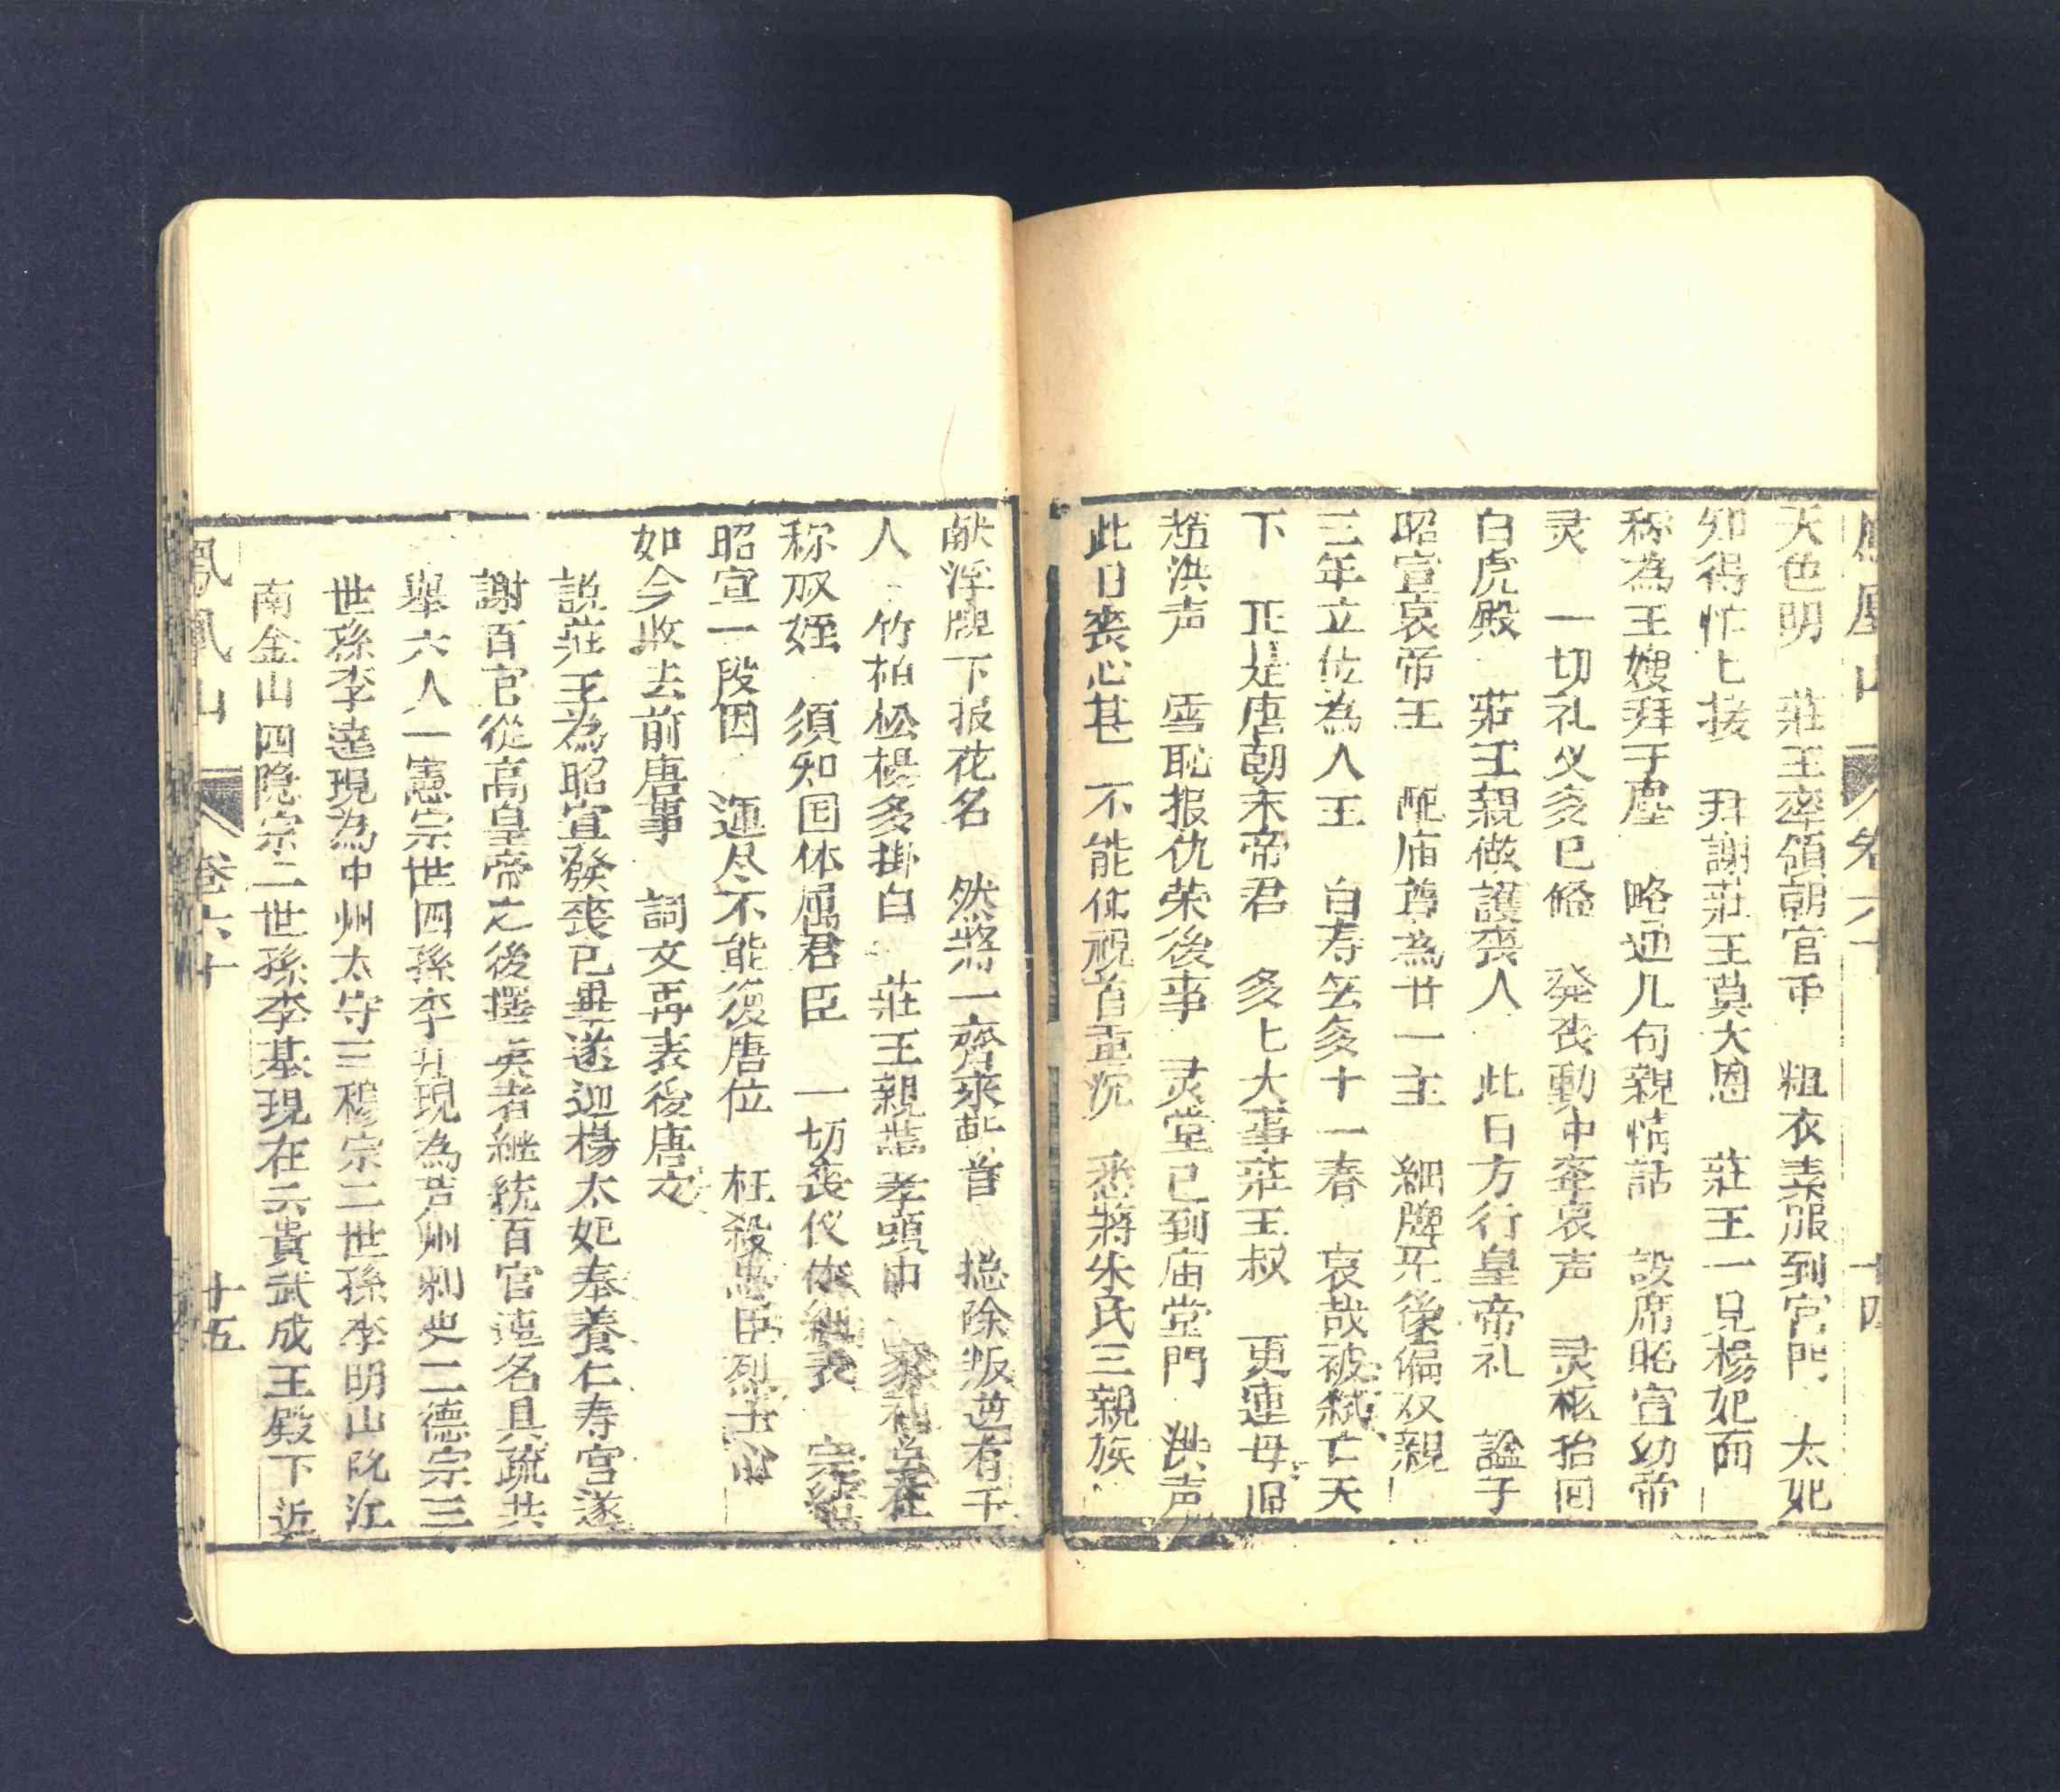 鳳凰山 卷六十 十四
天色明 莊王率領朝官等 粗衣素服到宮門 太妃
知得忙匕接 拜謝莊王莫大恩 莊王一見楊妃面
称為王嫂拜于塵 略通几句親情話 設席昭宣幼帝
灵 一切礼义多已俻 発丧動中举哀声 灵柩抬回
白虎殿 莊王親做護喪人 此日方行皇帝礼 謚子
昭宣哀帝王 配庙尊為廿一主 細牌死後偏双親
三年立位為人王 白寿年多十一春 哀哉被弑亡天
下 正是唐朝末帝君 多匕大事莊王叔 更連母
趙洪声 雪恥报仇荣後事 灵堂已到庙堂門 洪声
此日喪心甚 不能仰視首垂沉 悉將朱氏三親族
献浮牌下报花名 然將一齊來斬首 摠除叛逆有千
人 竹柏松楊多掛白 莊王親戴孝頭巾
称叔姪 須知国体属君臣 一切丧仪依細表
昭宣一段因 運尽不能復唐位 枉殺忠臣烈士心
如今收去前唐事 詞文再表後唐文
説莊王為昭宣發喪已畢遂迎楊太妃奉養仁寿宮遂
謝百官從高皇帝之後擇賢者継統百官連名具疏共
舉六人一憲宗世四孫李 現為芦州刺史二德宗三
世孫李達現為中州太守三穆宗二世孫李明山阮江
南金山四隐宗二世孫李基現在云貴武成王殿下近
鳳凰山 卷六十 十五